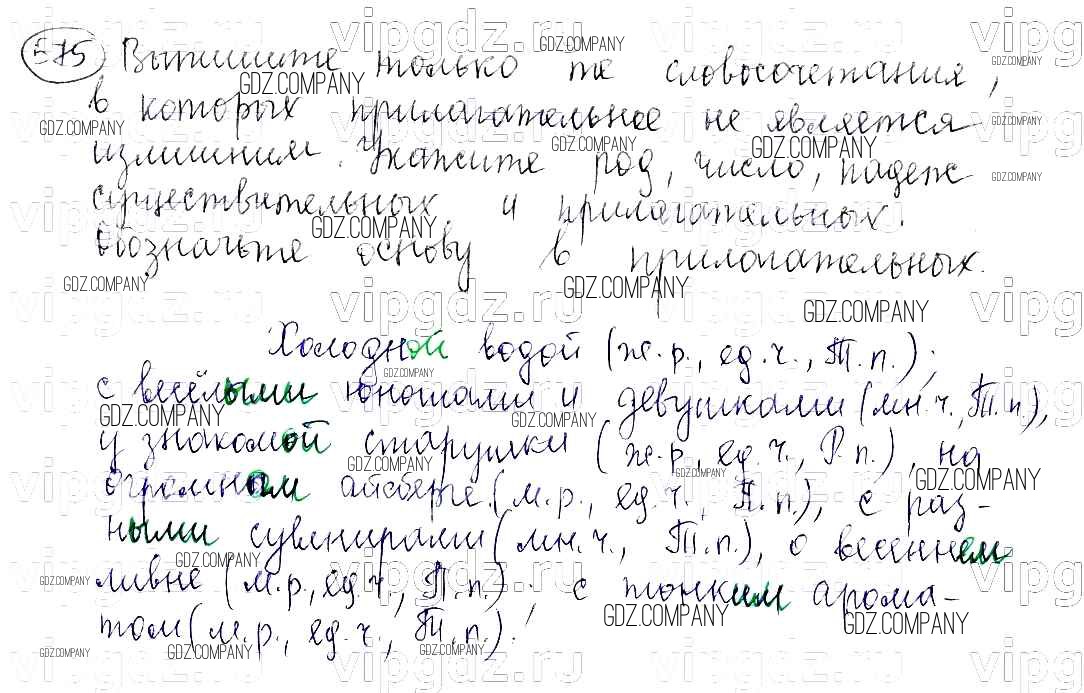 575 Выпишите только те словосочетания,
в которых прилагательное не является
излишним. Укажите род, число, падеж
существительных и прилагательных.
Обозначьте основу в прилагательных.
Холодной водой (ж.р., ед.ч., Т.п.),
с весёлыми юношами и девушками (мн.ч., Т.п.),
у знакомой старушки (ж.р., ед.ч., Р.п.), на
огромном айсберге (м.р., ед.ч., П.п.), с раз-
ными сувенирами (мн.ч., Т.п.), о весеннем
ливне (м.р., ед.ч., П.п.), с тонким арома-
том (м.р., ед.ч., Т.п.).